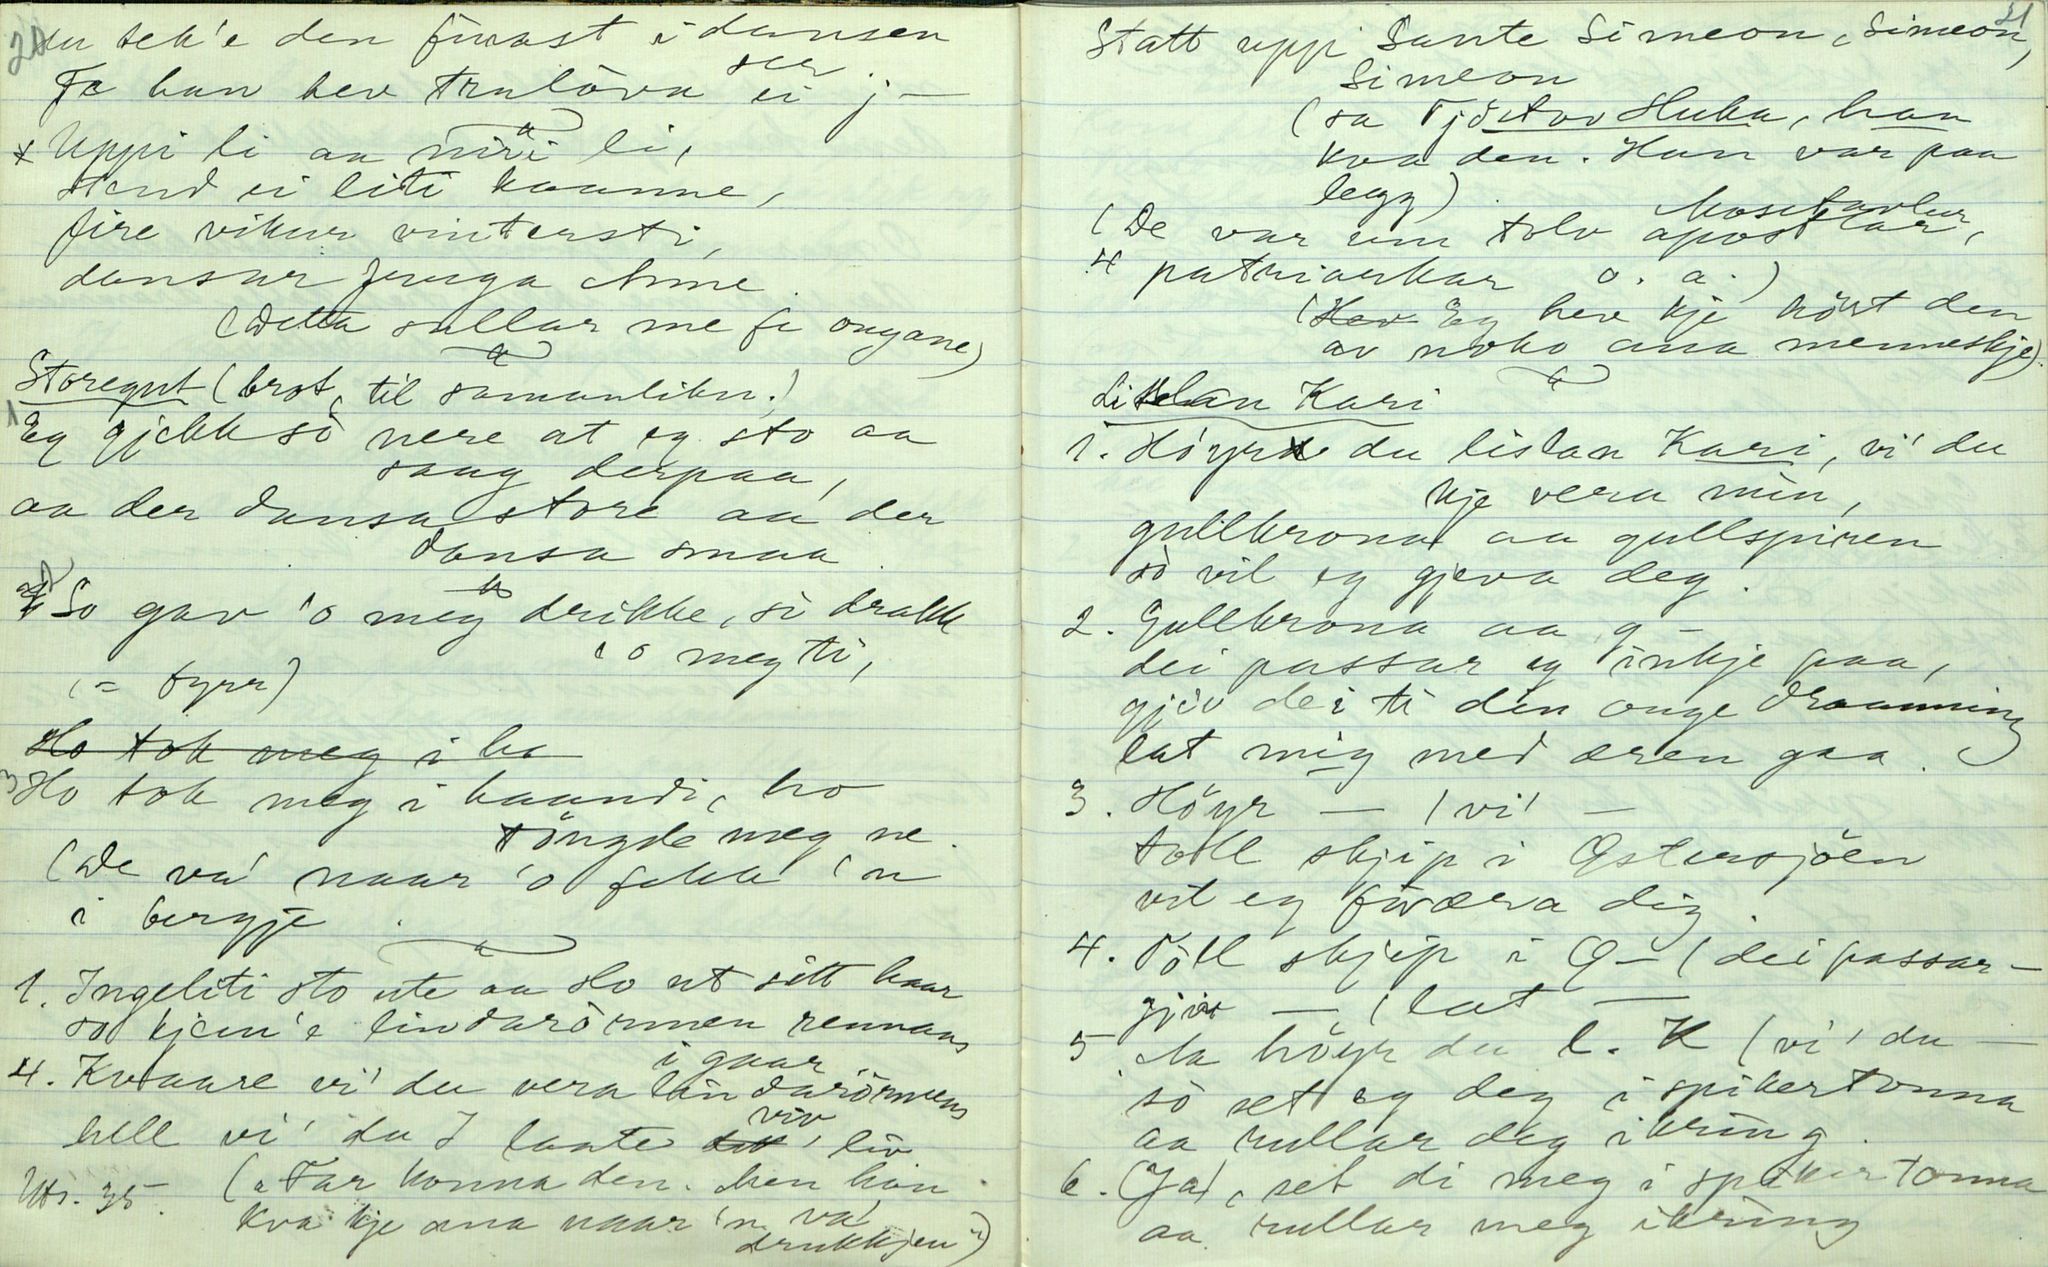 20
du tek'e den finast i dansen
Fe han hev trulova seg ei j —
* Uppi li aa niri li,
stend ei liti kaanne,
fire vikur vintersti,
dansar junga Anne.
(Detta sullar me fe ongane)
Storegut (brot, til samanlikn.)
1 Eg gjekk so nere at eg sto aa
saag derpaa,
aa der dansa store aa der
dansa smaa
2 So gav 'o meg drikke, si drakk
'o meg ti,
(= fyrr)
Ho tok meg i ha
3 Ho tok meg i haandi, ho
töngde meg ne.
(De va' naar 'o fekk 'n
i bergje.
1. Ingeliti sto ute aa slo ut sitt haar
so kjem'e lindarörmen rennans
i gaar
4. Kvaare vi' du vera lindarörmens
viv
hell vi' du I laate ditt liv
Uts. 35. ("Far konna den. Men han
kva kje ana naar 'n va'
drukkjen")
21
Statt uppi Sante Simeon, Simeon,
Simeon
(sa Tjöstov Huka, han
kva den. Han var paa
legg)
(De var um tolv apostlar,
4 patriarkar o. a.)
(Hev Eg hev kje höyrt den
av noko ana menneskje)
Lislan Kari
1. Höyre du lislan Kari, vi' du
kje vera min,
gullkrona aa gullspiren
so vil eg gjeva deg.
2. Gullkrona aa g —
dei passar eg inkje paa,
gjev dei ti din onge dronning
lat mig med æren gaa.
3. Höyr — (vi' —
toll skjip i Östersjöen
vil eg foræra dig.
4. Töll skjip i Ö — (dei passar —
gjev — (lat —
5 Aa höyr du l. K (vi' du —
so set eg deg i spikertonna
aa rullar deg ikring.
6. (Ja), set di meg i spikertonna
aa rullar meg ikring